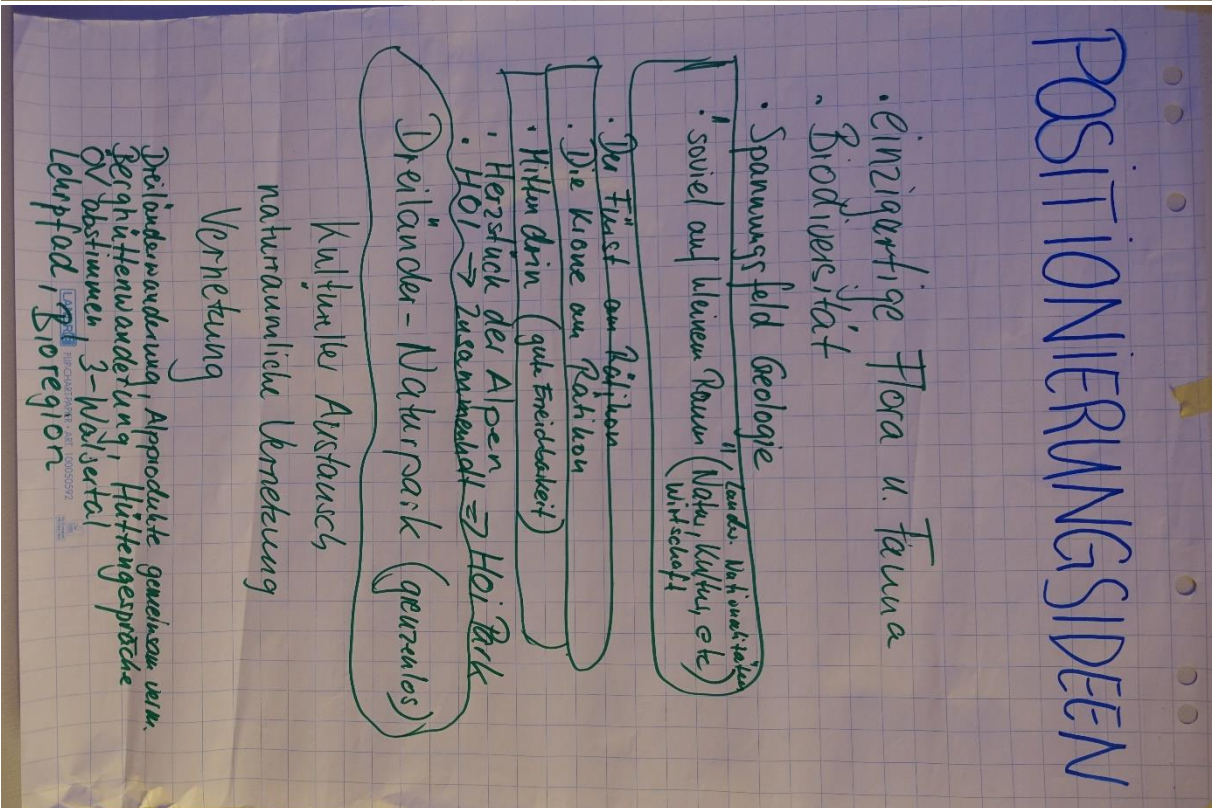 POSITIONIERUNGSIDEEN
• einzigartige Flora u. Fauna
• Biodiversität
• Spannungsfeld Geologie
Länder, Nationalitäten
• "soviel auf kleinem Raum" (Natur, Kultur, etc)
Wirtschaft
• Der Fürst am Rätikon
• Die Krone am Rätikon
• Mitten drin (gute Erreichbarkeit)
• Herzstück der Alpen
• HOI → Zusammenhalt ⇒ Hoi Park
Dreiländer-Naturpark (grenzenlos)
Kultureller Austausch
naturräumliche Vernetzung
Vernetzung
Dreiländerwanderung, Alpprodukte gemeinsam verm.
Berghüttenwanderung, Hüttengespräche
ÖV abstimmen 3-Walsertal
Lehrpfad, Bioregion